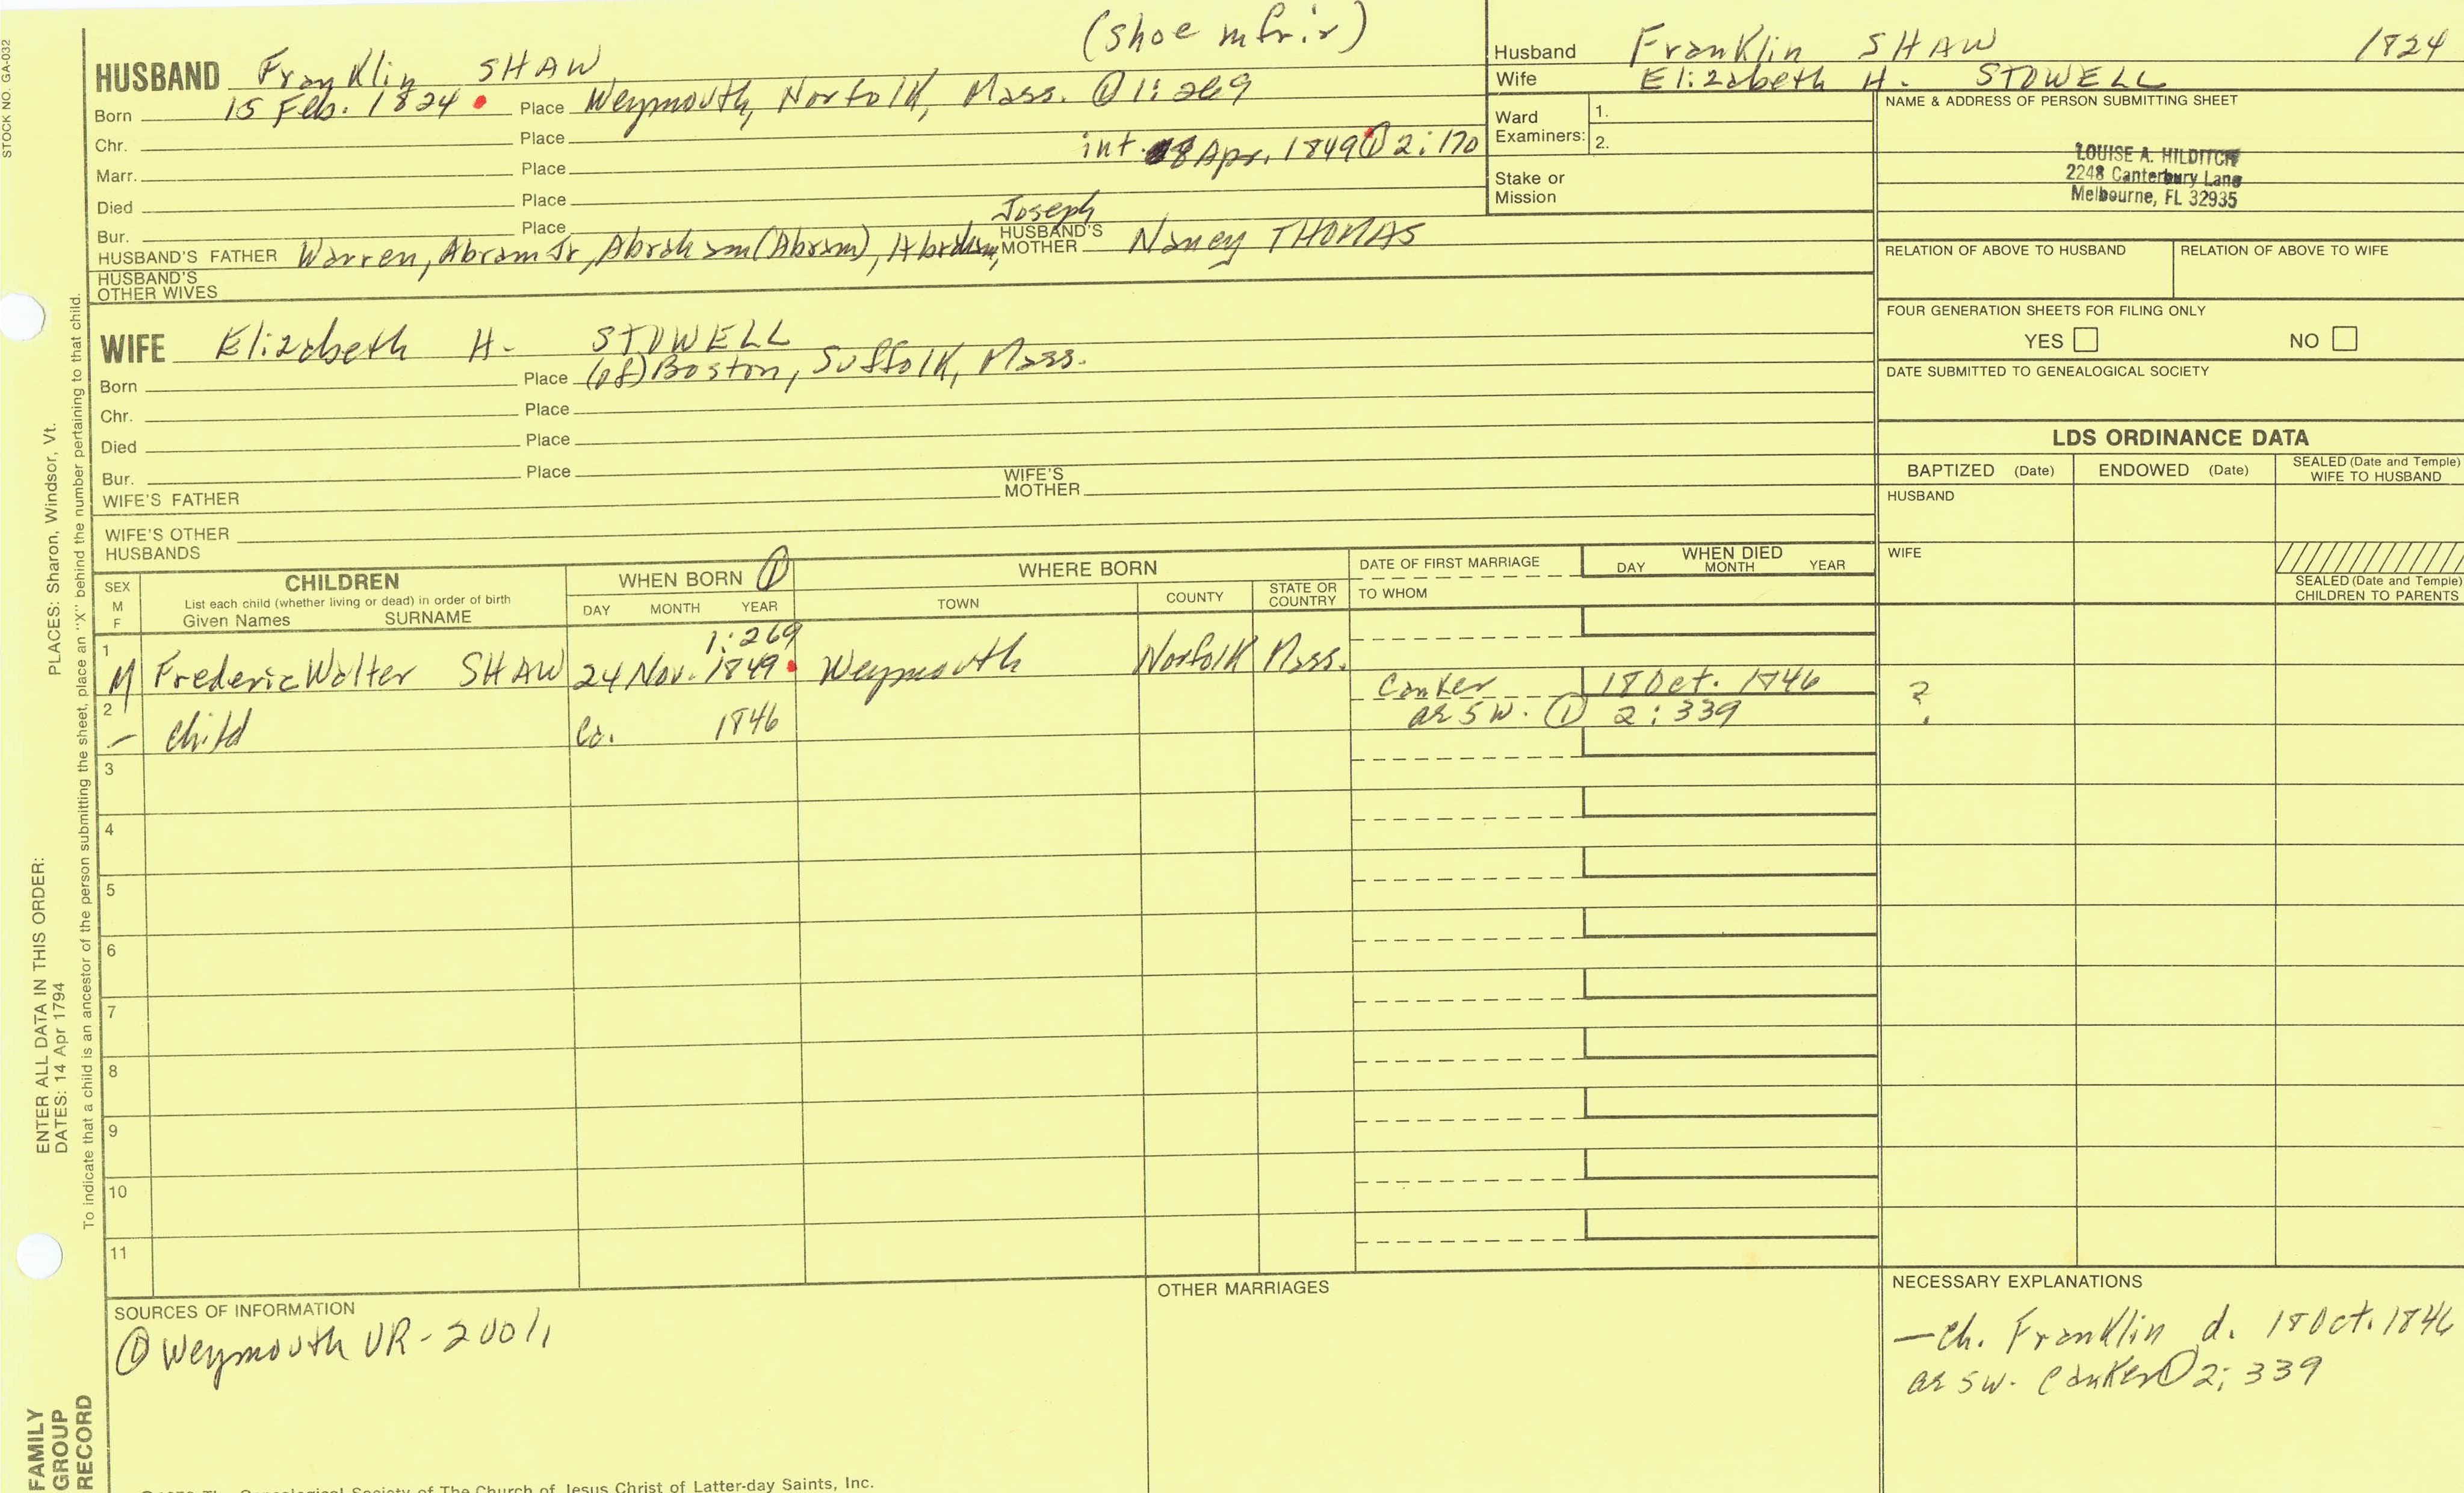 STOCK NO. GA-032
(shoe mfr.ir)
HUSBAND Franklin SHAW
Born 15 Feb. 1824 Place Weymouth, Norfolk, Mass. ① 1:269
Chr. Place
int. 8 Apr. 1849 ① 2:170
Marr. Place
Died Place
Bur. Place
Joseph
HUSBAND'S FATHER Warren, Abram Jr, Abraham (Abram), Abraham, HUSBAND'S MOTHER Nancy THOMAS
HUSBAND'S OTHER WIVES
WIFE Elizabeth H. STOWELL
Born Place (of) Boston, Suffolk, Mass.
Chr. Place
Died Place
Bur. Place
WIFE'S FATHER WIFE'S MOTHER
WIFE'S OTHER HUSBANDS
Husband Franklin SHAW 1824
Wife Elizabeth H. STOWELL
Ward Examiners: 1.
2.
Stake or Mission
NAME & ADDRESS OF PERSON SUBMITTING SHEET
LOUISE A. HILDITCH
2248 Canterbury Lane
Melbourne, FL 32935
RELATION OF ABOVE TO HUSBAND RELATION OF ABOVE TO WIFE
FOUR GENERATION SHEETS FOR FILING ONLY
YES NO
DATE SUBMITTED TO GENEALOGICAL SOCIETY
LDS ORDINANCE DATA
BAPTIZED (Date) ENDOWED (Date) SEALED (Date and Temple) WIFE TO HUSBAND
HUSBAND
WIFE
SEALED (Date and Temple) CHILDREN TO PARENTS
SEX M F
CHILDREN
List each child (whether living or dead) in order of birth
Given Names SURNAME
WHEN BORN ①
DAY MONTH YEAR
WHERE BORN
TOWN COUNTY STATE OR COUNTRY
DATE OF FIRST MARRIAGE
TO WHOM
WHEN DIED
DAY MONTH YEAR
1:269
1 M Frederic Walter SHAW 24 Nov. 1849 Weymouth Norfolk Mass.
2 – child Ca. 1846 Canker 18 Oct. 1846 ?
ae 5w. ① 2:339
3
4
5
6
7
8
9
10
11
SOURCES OF INFORMATION
① Weymouth VR-
OTHER MARRIAGES
NECESSARY EXPLANATIONS
—ch. Franklin d. 18 Oct. 1846
ae 5w. Canker ① 2:339
PLACES: Sharon, Windsor, Vt.
ENTER ALL DATA IN THIS ORDER:
DATES: 14 Apr 1794
To indicate that a child is an ancestor of the person submitting the sheet, place an "X" behind the number pertaining to that child.
FAMILY GROUP RECORD
The Genealogical Society of The Church of Jesus Christ of Latter-day Saints, Inc.